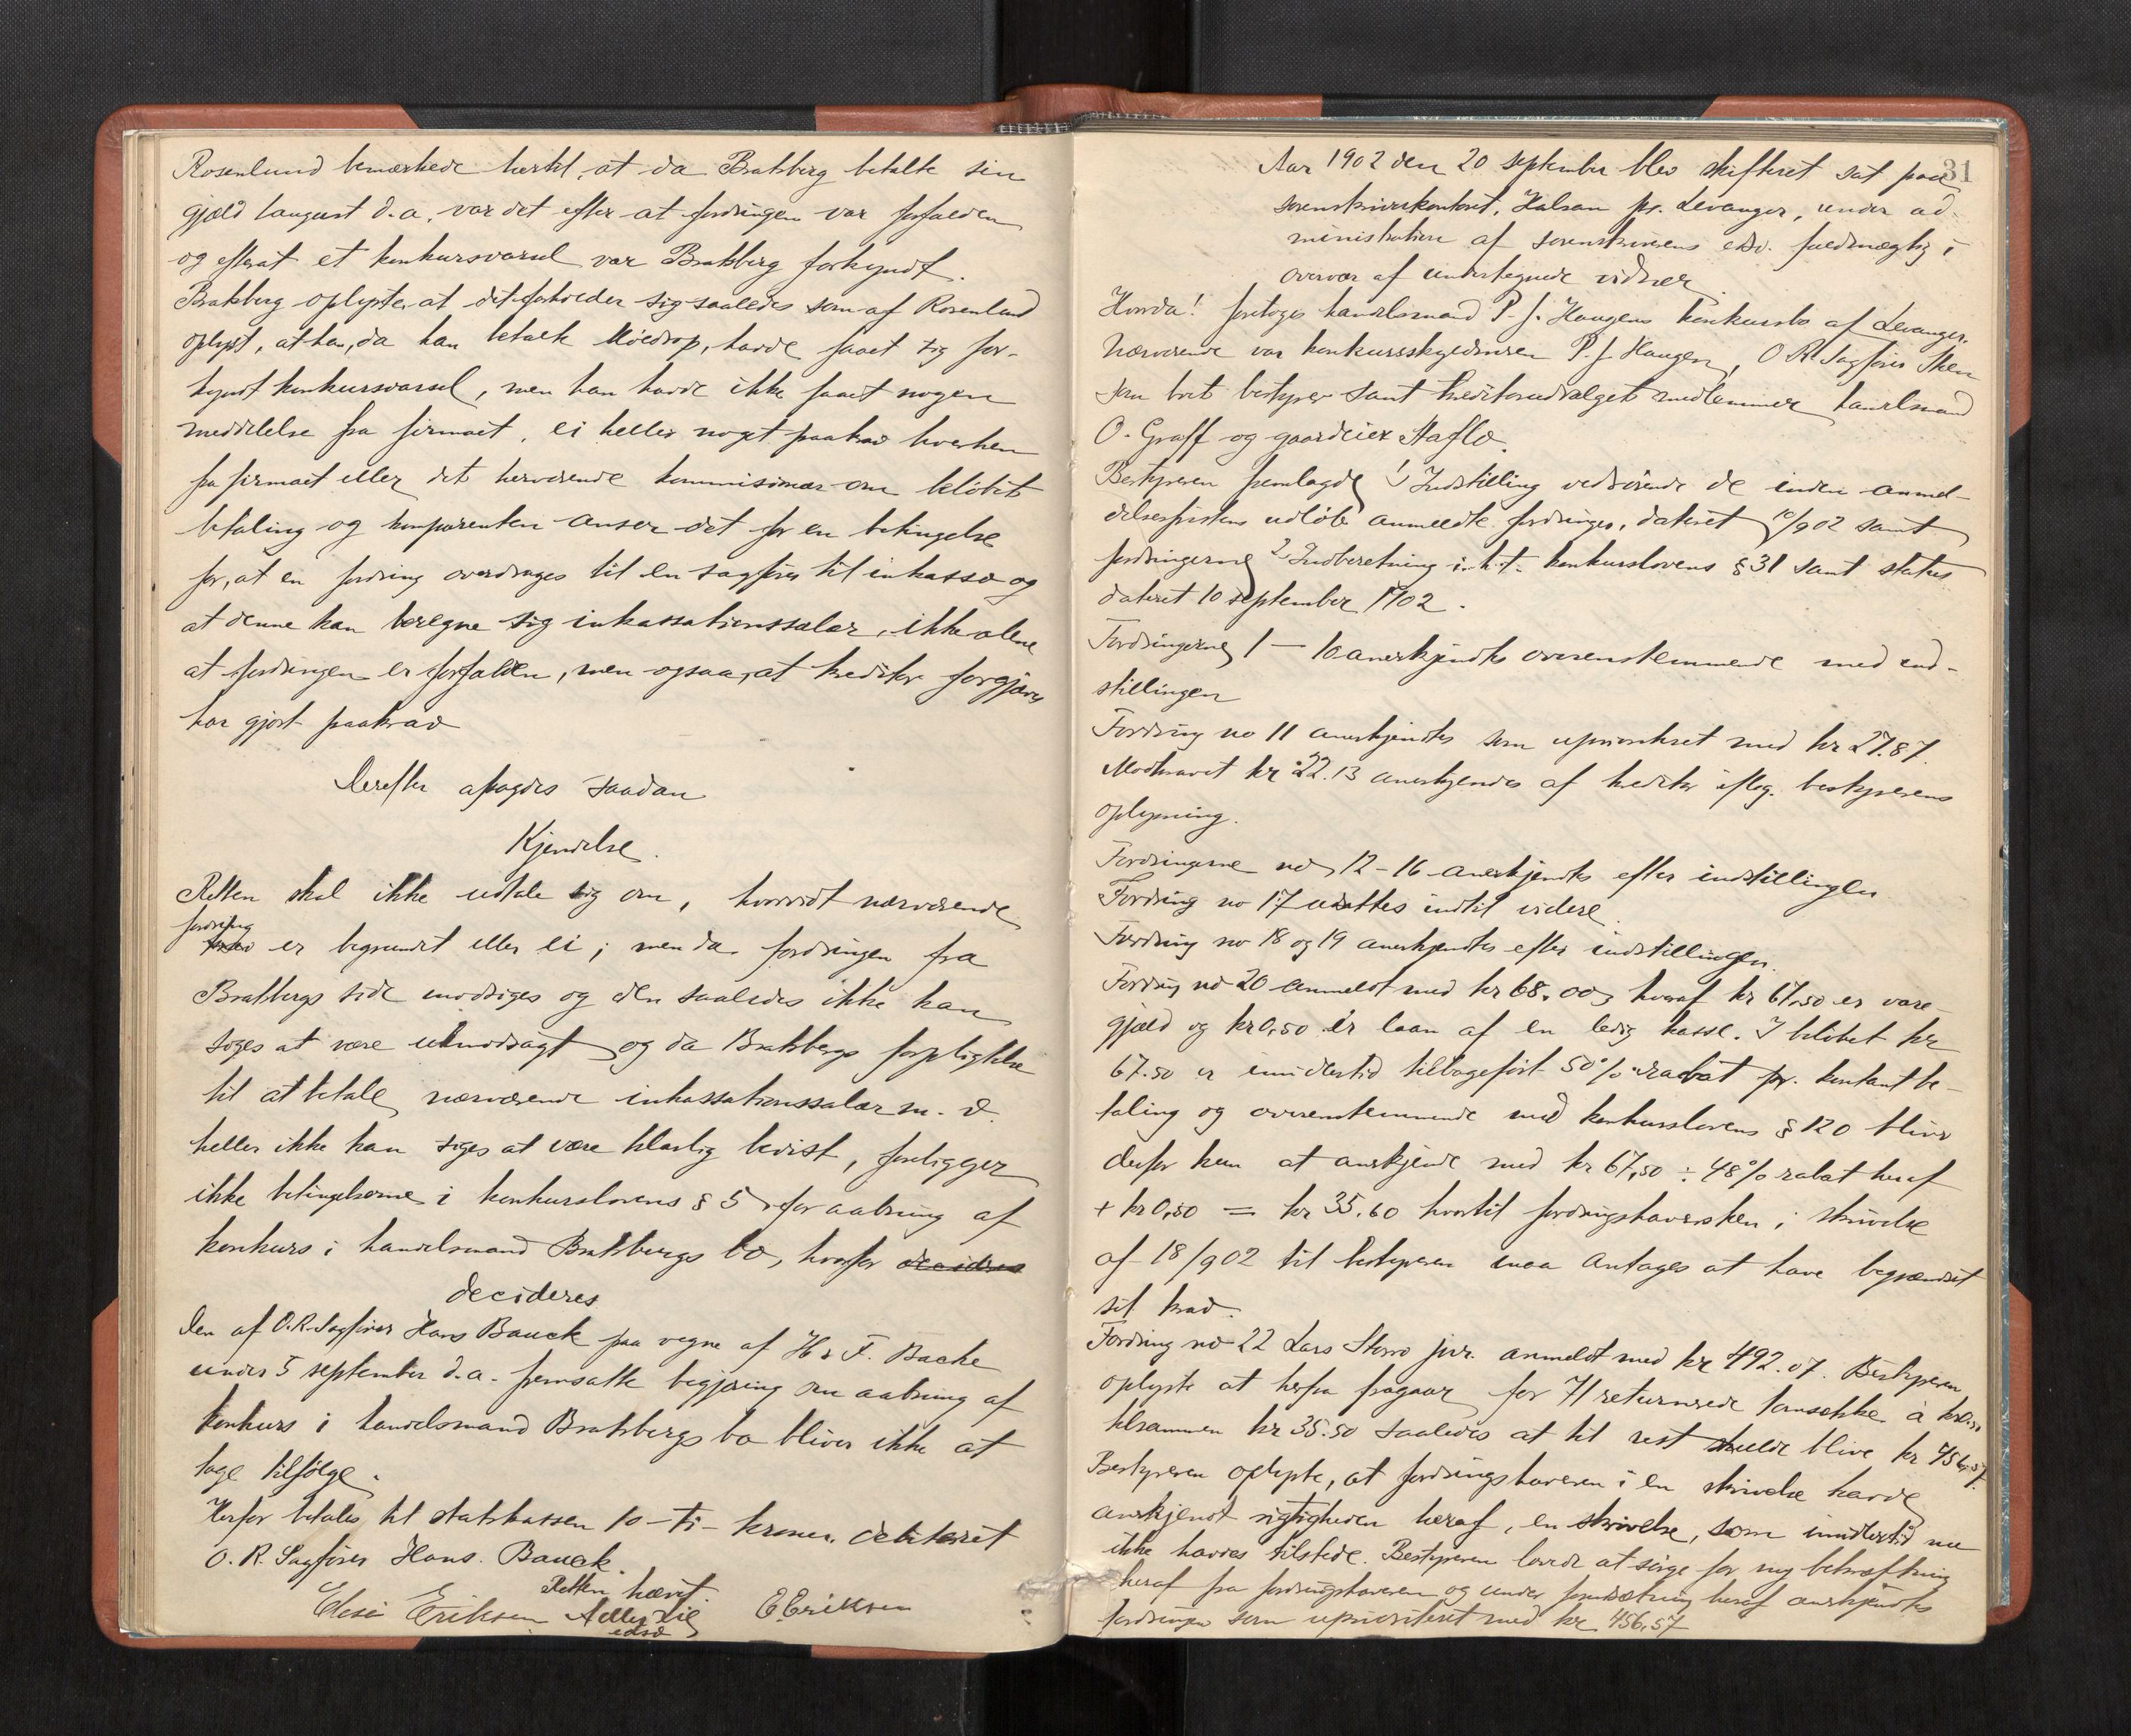 Rosenlund bemærkede hertil, at da Bratsberg betalte sin
gjæld i august d.a. var det efter at fordringen var forfalden
og efterat et konkursvarsel var Bratsberg forkyndt.
Bratsberg oplyste, at det forholder sig saaledes som af Rosenlund
oplyst, at han, da han betalte, havde faaet sig for-
kyndt konkursvarsel, men han havde ikke faaet nogen
meddelelse fra firmaet, ei heller noget paakrav hverken
fra firmaet eller det herværende kommisionær om beløbets
betaling og komparenten anser det for en betingelse
for, at en fordring overdrages til en sagfører til inkasso og
at denne kan beregne sig inkassationssalær, ikke alene
at fordringen er forfalden, men ogsaa, at kreditor forgjæves
har gjort paakrav
Derefter afsagdes saadan
Kjendelse.
Retten skal ikke udtale sig om, hvorvidt nærværende
fordring
krav er begrundet eller ei; men da fordringen fra
Bratsbergs side modsiges og den saaledes ikke kan
siges at være uimodsagt og da Bratsbergs forpligtelse
til at betale nærværende inkassationssalær m. v.
heller ikke kan siges at være klarlig bevist, foreligger
ikke betingelserne i konkurslovens § 5 for aabning af
konkurs i handelsmand Bratsbergs bo, hvorfor decideres
decideres
Den af O.R. Sagfører Hans Bauck paa vegne af H & F. Bache
under 5 september d.a. fremsatte begjæring om aabning af
konkurs i handelsmand Bratsbergs bo bliver ikke at
tage tilfølge.
Herfor betales til statskassen 10 - ti - kroner. debiteret
O. R. Sagfører Hans. Bauck.
Retten hævet.
Elesi Eriksen Adler Lie E. Eriksen
edsv
31
Aar 1902 den 20 september blev skifteret sat paa
sorenskriverkontoret, Halsan pr. Levanger, under ad-
ministration af sorenskriverens edsv. fuldmægtig i
overvær af undertegnede vidner
Hvorda! foretoges handelsmand P. J. Haugens konkursbo af Levanger.
Nærværende var konkursskyldneren P. J. Haugen, O R Sagfører Sken
som boets bestyrer samt kreditorudvalgets medlemmer handelsmand
O. Graff og gaardeier Staflo.
Bestyreren fremlagde 1 Indstilling vedrørende de inden anmel-
delsesfristens udløb anmeldte fordringer, dateret 10/9 02 samt
fordringerne 2 Indberetning i.h.t. konkurslovens § 31 samt status
dateret 10 september 1902.
Fordringerne 1 — 10 anerkjendtes overensstemmende med ind-
stillingen
Fordring no 11 anerkjendtes som uprioriteret med kr 27.87.
Modkravet kr 22.13 anerkjendes af kreditor ifølg. bestyrerens
oplysning.
Fordringerne no 12-16 anerkjendtes efter indstillingen
Fordring no 17 udsattes indtil videre.
Fordring no 18 og 19 anerkjendtes efter indstillingen.
Fordring no 20 anmeldt med kr 68.00, hvoraf kr 67.50 er vare-
gjæld og kr 0,50 er laan af en ledig kasse. I beløbet kr
67.50 er imidlertid tilbageført 50 % rabat pr. kontant be-
taling og overensstemmende med konkurslovens § 120 bliver
derfor kun at anerkjende med kr 67,50 ÷ 48 % rabat heraf
+ kr 0,50 = kr 35.60 hvortil fordringshaversken i skrivelse
af 18/9 02 til bestyreren maa antages at have begrændset
sit krav.
Fordring no 22 Lars Storro junr. anmeldt med kr 492.07. Bestyreren
oplyste at herfra fragaar for 71 returnerede tomsække à kr 0,50
tilsammen kr 35.50 saaledes at til rest skulde blive kr 456,57.
Bestyreren oplyste, at fordringshaveren i en skrivelse havde
anerkjendt rigtigheden heraf, en skrivelse, som imidlertid nu
ikke havdes tilstede. Bestyreren lovede at sørge for ny bekræftning
heraf fra fordringshaveren og under forudsætning heraf anerkjendtes
fordringen som uprioriteret med kr 456,57